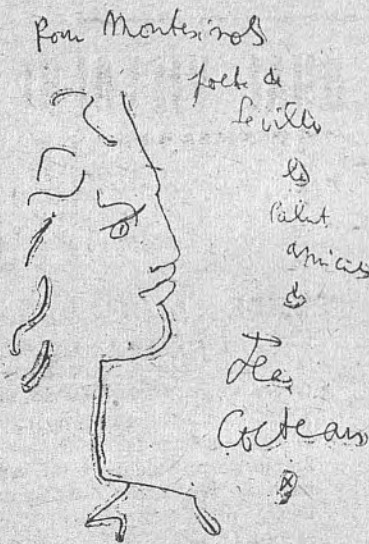 Pour Montesinos
poète de
Séville
le
salut
amical
de
Jean
Cocteau